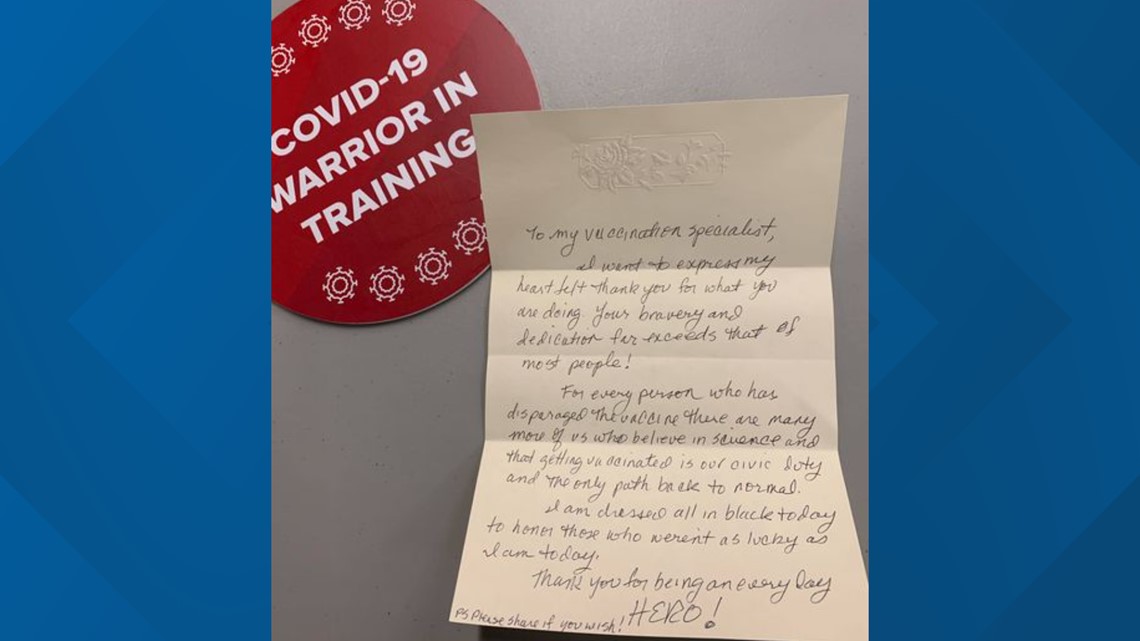 COVID-19
WARRIOR IN
TRAINING
To my vaccination specialist,
I want to express my
heart felt thank you for what you
are doing. Your bravery and
dedication far exceeds that of
most people!
For every person who has
disparaged the vaccine there are many
more of us who believe in science and
that getting vaccinated is our civic duty
and the only path back to normal.
I am dressed all in black today
to honor those who weren't as lucky as
I am today.
Thank you for being an every day
HERO!
PS Please share if you wish!